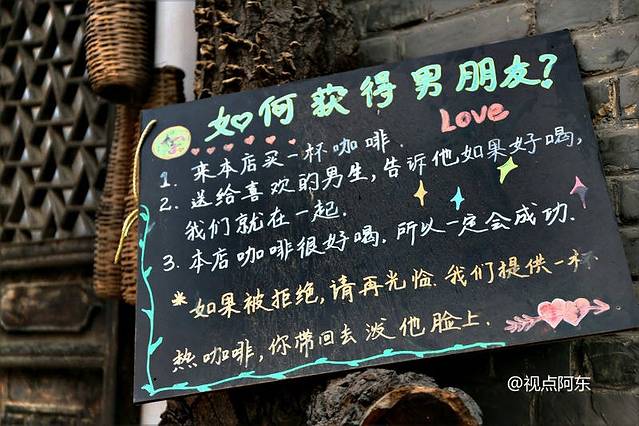 如何获得男朋友?
Love
1. 来本店买一杯咖啡.
2. 送给喜欢的男生,告诉他如果好喝,
我们就在一起.
3. 本店咖啡很好喝.所以一定会成功.
*如果被拒绝,请再光临.我们提供一杯
热咖啡,你带回去泼他脸上.
@视点阿东